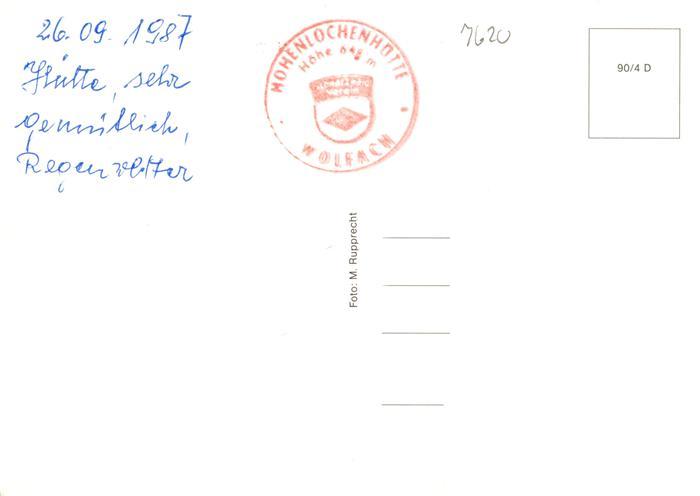 26.09.1987
Hütte, sehr
gemütlich,
Regenwetter
HOHENLOCHENHÜTTE
Höhe 648 m
WOLFACH
7620
90/4 D
Foto: M. Rupprecht